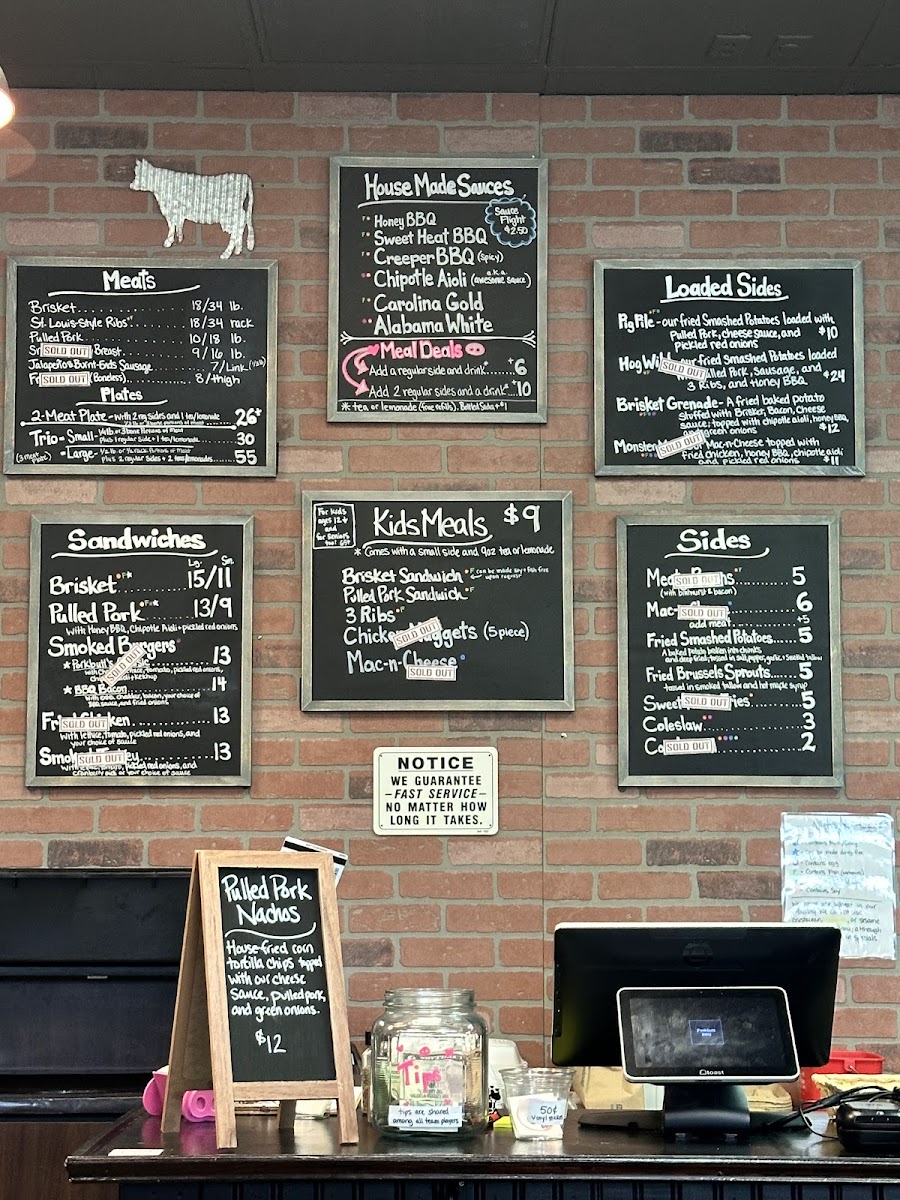 House Made Sauces
Sauce Flight $2.50
Honey BBQ
Sweet Heat BBQ
Creeper BBQ (Spicy)
Chipotle Aioli (a.k.a. awesome sauce)
Carolina Gold
Alabama White
Meal Deals
Add a regular side and drink....+6
Add 2 regular sides and a drink....+10
* tea or lemonade (free refills). Bottled Soda +$1
Meats
Brisket........... 18/34 lb.
St. Louis-Style Ribs....... 18/34 rack
Pulled Pork........... 10/18 lb.
SOLD OUT Breast........ 9/16 lb.
Jalapeño & Burnt-Ends Sausage..... 7/Link
SOLD OUT (Boneless)........ 8/thigh
Plates
2-Meat Plate - with 2 reg sides and 1 tea/lemonade
26+
Trio - Small - 30
plus 1 regular side + 1 tea/lemonade
(3 meat Plate) - Large - 55
plus 2 regular sides + 2 teas/lemonades
Loaded Sides
Pig Pile - our fried Smashed Potatoes loaded with
Pulled Pork, cheese sauce, and
Pickled red onions $10
SOLD OUT our fried Smashed Potatoes loaded
Pulled Pork, Sausage, and
3 Ribs, and Honey BBQ $24
Brisket Grenade - A fried baked potato
stuffed with Brisket, Bacon, Cheese
sauce, topped with chipotle aioli, honey BBQ,
and green onions $12
SOLD OUT Mac-n-Cheese topped with
fried chicken, honey BBQ, chipotle aioli
and pickled red onions $11
Sandwiches
Lg. Sm.
Brisket 15/11
Pulled Pork 13/9
with Honey BBQ, Chipotle Aioli + pickled red onions
Smoked Burgers
SOLD OUT 13
* BBQ Bacon 14
with BBQ, cheddar, bacon, your choice of
BBQ sauce, and fried onions
Fried Chicken SOLD OUT 13
with lettuce, tomato, pickled red onions, and
your choice of sauce
Smoked Turkey SOLD OUT 13
pickled red onions, and
cranberry aioli or your choice of sauce
For kids ages 12↓ and for Seniors too! 65↑
Kids Meals $9
* Comes with a small side and 9oz tea or lemonade
Brisket Sandwich
can be made soy + fish free upon request
Pulled Pork Sandwich
3 Ribs
Chicken Nuggets (5 piece)
SOLD OUT
Mac-n-Cheese
SOLD OUT
Sides
SOLD OUT 5
(with brisket & bacon)
Mac SOLD OUT 6
add meat +5
Fried Smashed Potatoes..... 5
A baked potato broken into chunks
and deep fried, tossed in salt, pepper, garlic + smoked tallow
Fried Brussels Sprouts..... 5
tossed in smoked tallow and hot maple syrup
Sweet SOLD OUT Fries 5
Coleslaw 3
SOLD OUT 2
NOTICE
WE GUARANTEE
–FAST SERVICE–
NO MATTER HOW
LONG IT TAKES.
Pulled Pork
Nachos
House-fried corn
tortilla chips topped
with our cheese
sauce, pulled pork,
and green onions.
$12
Tips
tips are shared
among all team players
50¢
toast